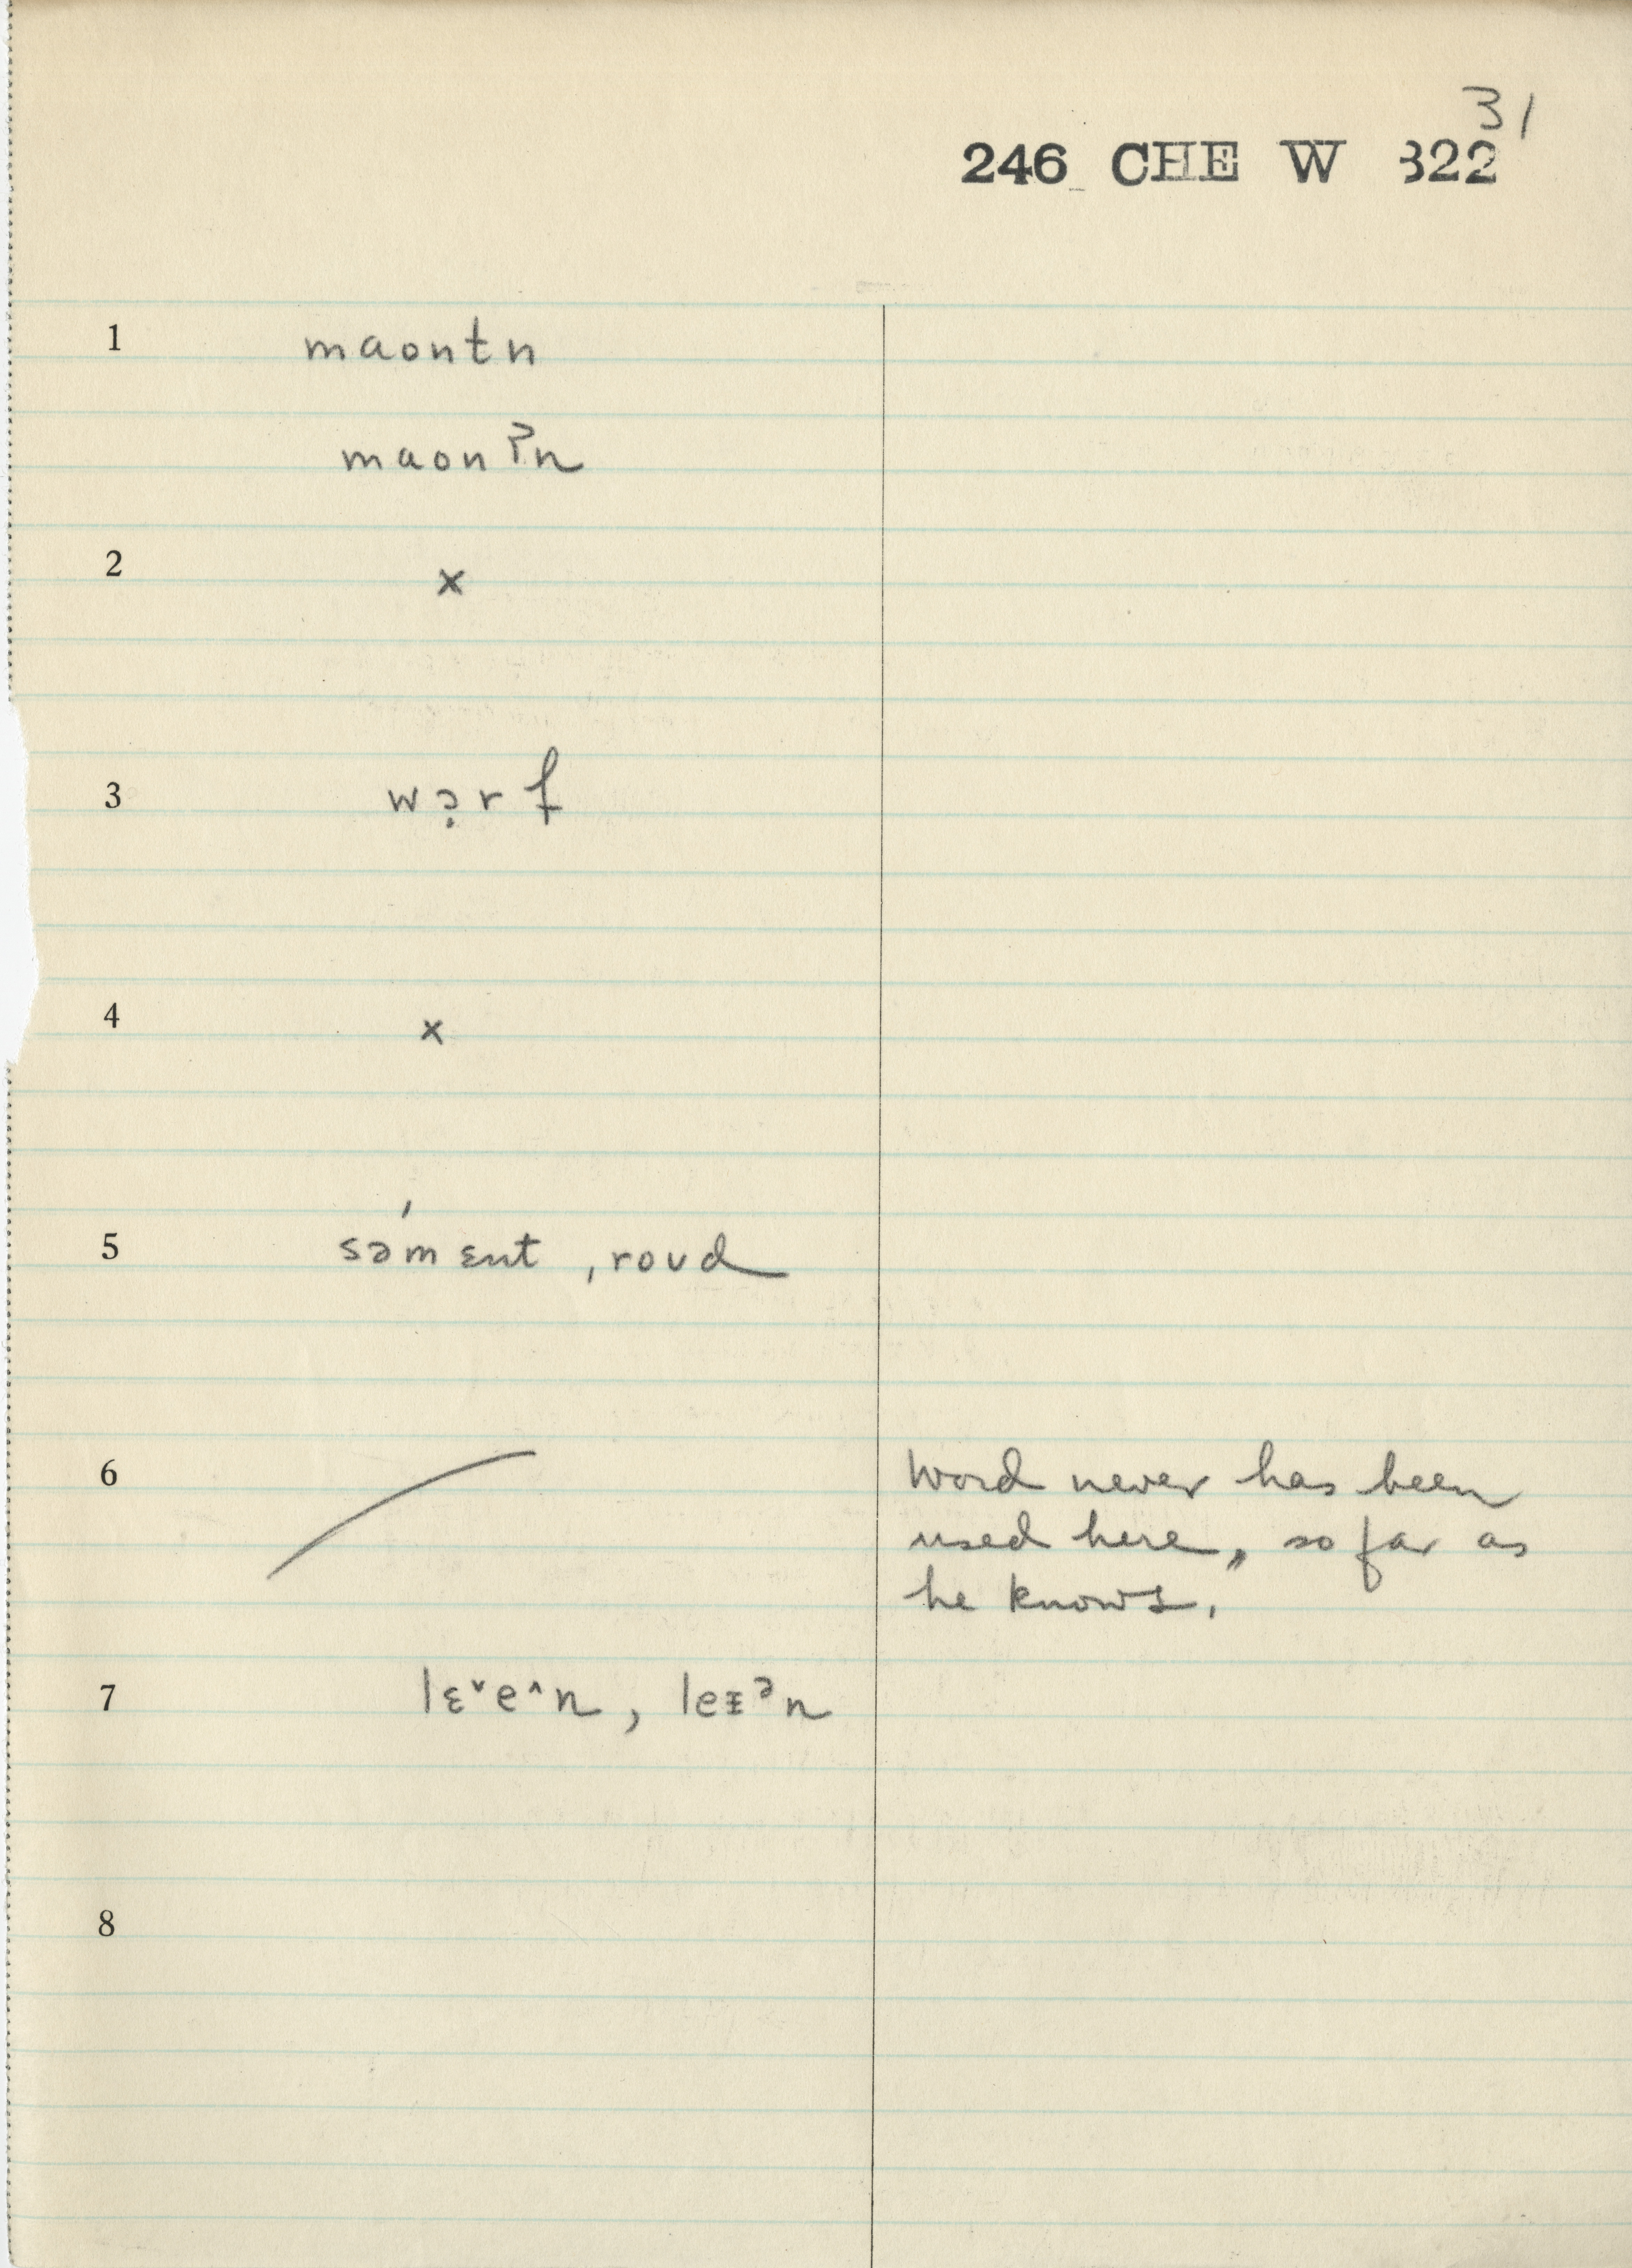 31
246 CHE W 322
1 maontn
maonʔn
2 x
3 wɔ̣rf
4 x
5 sə́mɛnt , roud
6 Word never has been
used here, so far as
he knows.
7 lɛ˅e˄n, leɪᵊn
8